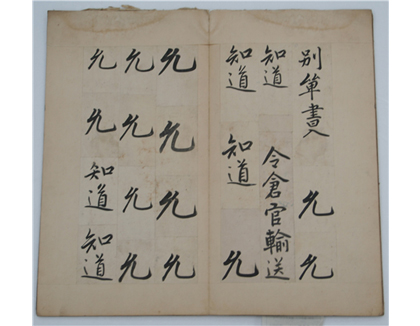 別單書入 允 允
知道 令倉官輸送
知道 知道 允
允 允 允 允
允 允 允 允
允 允 知道 知道